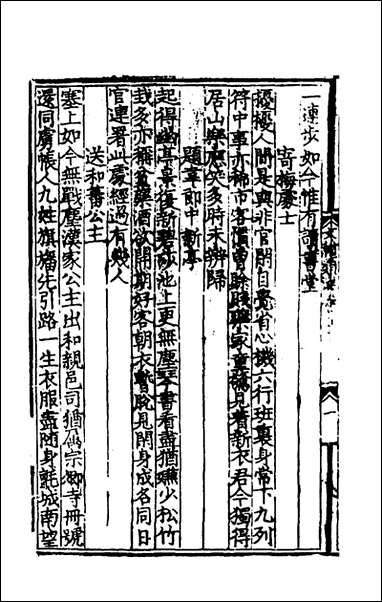 一連步如今惟有讀書堂
寄梅處士
擾擾人間是與非官閑自覺省心機六行班裏身常下九列
符中事亦稀市客慣曾賒賤藥家童驚見著新衣君今獨得
居山樂應笑多時未辨歸
題韋郎中新亭
起得幽亭景復新碧莎池上更無塵琴書看盡猶嫌少松竹
栽多亦稱貧藥酒欲開期好客朝衣暫脫見閑身成名同日
官連署此處經過有幾人
送和蕃公主
塞上如今無戰塵漢家公主出和親邑司猶屬宗卿寺冊號
還同虜帳人九姓旗旛先引路一生衣服盡隨身氈城南望